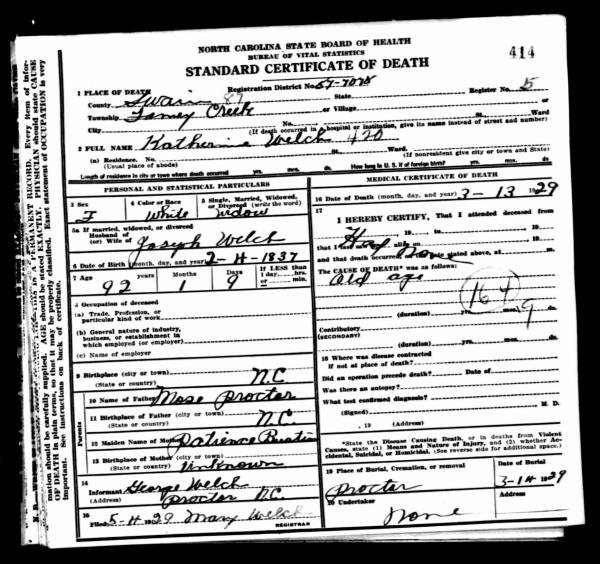 NORTH CAROLINA STATE BOARD OF HEALTH
BUREAU OF VITAL STATISTICS
414
STANDARD CERTIFICATE OF DEATH
1 PLACE OF DEATH
Registration District No. 87-7075
Register No. 5
County Swain 87 State
Township Forney Creek or Village
City No. St. Ward
(If death occurred in hospital or institution, give its name instead of street and number)
2 FULL NAME Katherine Welch 420
(a) Residence. No. St. Ward
(Usual place of abode) (If nonresident give city or town and State)
Length of residence in city or town where death occurred yrs. mos. ds. How long in U. S. if of foreign birth? yrs. mos. ds.
PERSONAL AND STATISTICAL PARTICULARS
3 Sex F
4 Color or Race White
5 Single, Married, Widowed, or Divorced (write the word) Widow
5a If married, widowed, or divorced
Husband of
(or) Wife of Joseph Welch
6 Date of Birth (month, day, and year) 2-4-1837
7 Age years 92 Months 1 Days 9 If LESS than 1 day, hrs. or min.
8 Occupation of deceased
(a) Trade, Profession, or particular kind of work
(b) General nature of industry, business, or establishment in which employed (or employer)
(c) Name of employer
9 Birthplace (city or town)
(State or country) N.C
Parents
10 Name of Father Mose Proctor
11 Birthplace of Father (city or town)
(State or country) N.C
12 Maiden Name of Mother Patience
13 Birthplace of Mother (city or town)
(State or country) Unknown
14 Informant George Welch
(Address) Proctor N.C.
15 Filed 5-4 1929 Mary Welch
REGISTRAR
MEDICAL CERTIFICATE OF DEATH
16 Date of Death (month, day, and year) 3-13 1929
17 I HEREBY CERTIFY, That I attended deceased from
, 19 , to , 19
that I last saw alive on , 19
and that death occurred on date stated above, at m.
The CAUSE OF DEATH* was as follows:
Old age
164
9
(duration) yrs. mos. ds.
Contributory
(SECONDARY)
(duration) yrs. mos. ds.
18 Where was disease contracted
if not at place of death?
Did an operation precede death? Date of
Was there an autopsy?
What test confirmed diagnosis?
(Signed) M. D.
, 19 (Address)
*State the Disease Causing Death, or in deaths from Violent Causes, state (1) Means and Nature of Injury, and (2) whether Accidental, Suicidal, or Homicidal. (See reverse side for additional space.)
19 Place of Burial, Cremation, or removal Proctor
Date of Burial 3-14 1929
20 Undertaker None
Address
RECORD. Every item of information should be carefully supplied. AGE should be stated EXACTLY. PHYSICIAN should state CAUSE OF DEATH in plain terms, so that it may be properly classified. Exact statement of OCCUPATION is very important. See instructions on back of certificate.